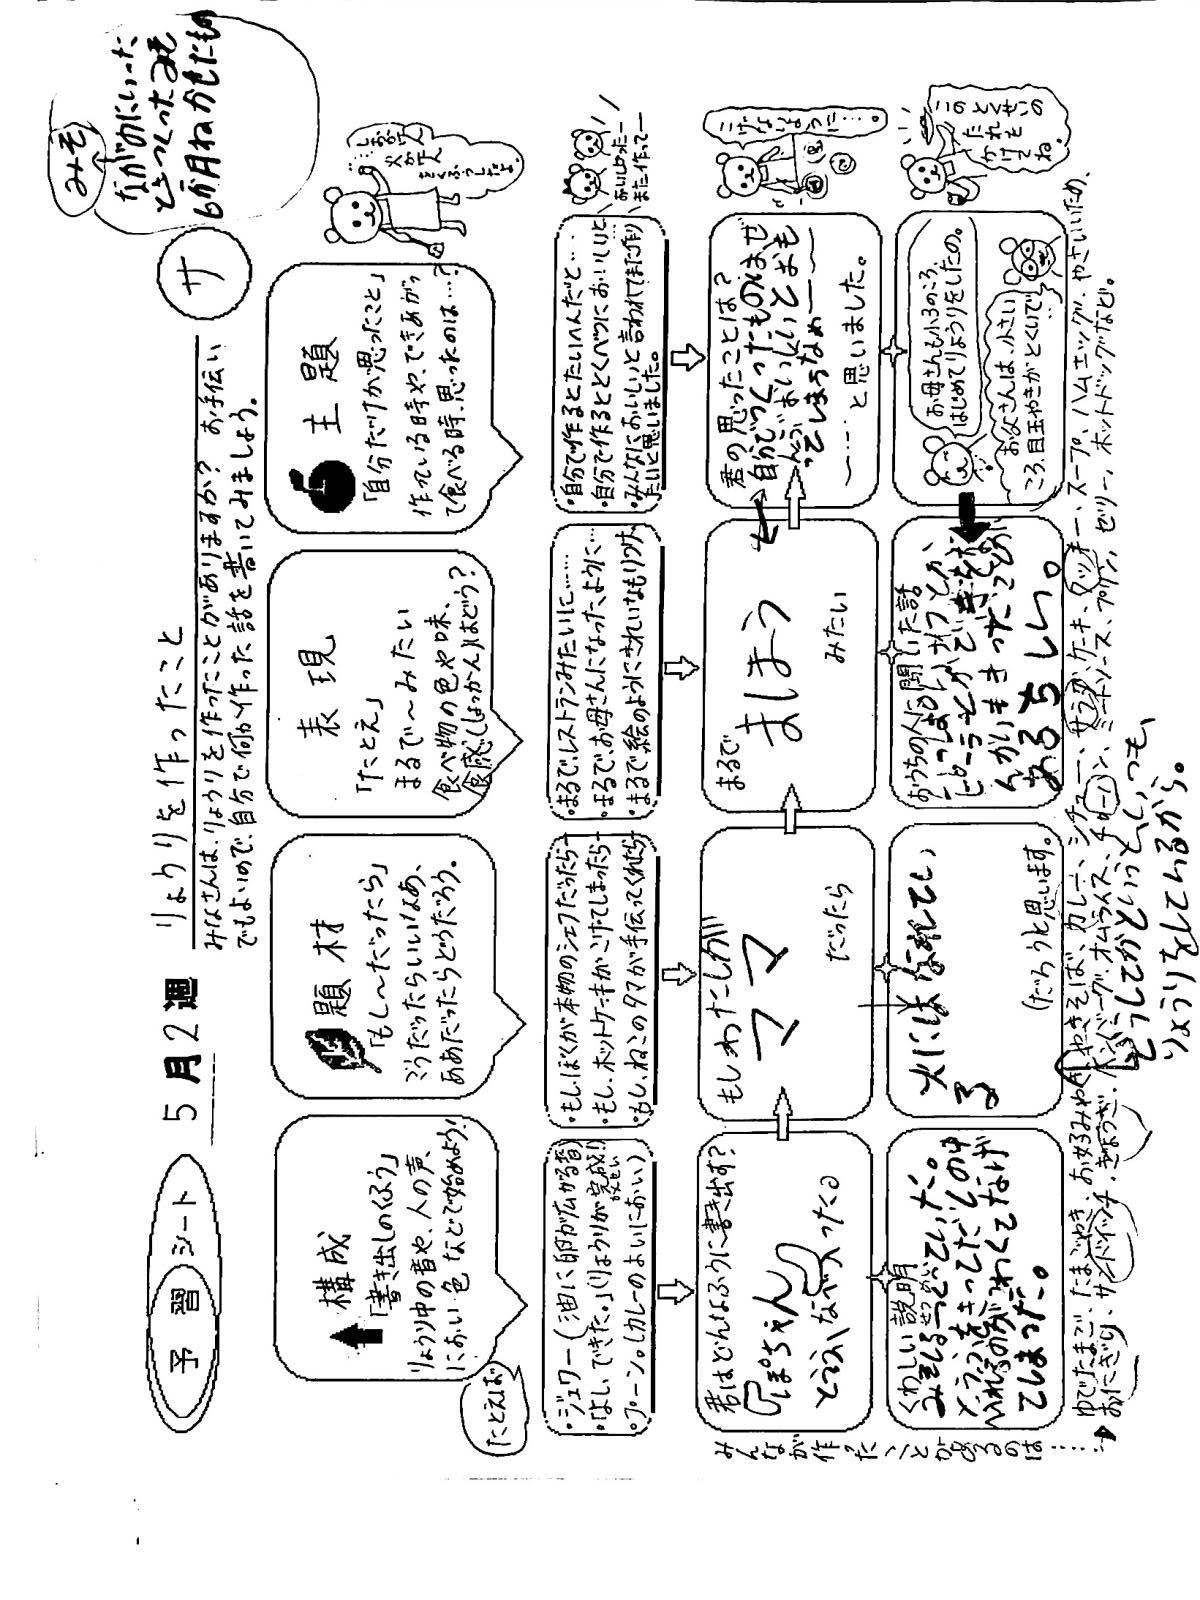 予習シート
5月2週
りょうりを作ったこと
サ
みそ
ながのにいった
ときつくったみそ
6か月ねかしたもの
みなさんは、りょうりを作ったことがありますか？ お手伝い
でもよいので、自分で何か作った話を書いてみましょう。
構成
「書き出しのくふう」
りょうり中の音や、人の声、
におい、色などで始めよう！
題材
「もし〜だったら」
こうだったらいいなあ、
ああだったらどうだろう。
表現
「たとえ」
まるで〜みたい
食べ物の色や味、
食感(しょっかん)はどう？
主題
「自分だけが思ったこと」
作っている時や、できあがっ
て食べる時、思ったのは…？
たとえば
・ジュワー(油に卵が広がる音)
・「よし、できた。」(りょうりが完成！)
・プーン。(カレーのよいにおい)
・もし、ぼくが本物のシェフだったら…
・もし、ホットケーキがこげてしまったら…
・もし、ねこのタマが手伝ってくれたら…
・まるで、レストランみたいに……
・まるで、お母さんになったように…
・まるで絵のようにきれいなもりつけ
・自分で作るとたいへんだと…
・自分で作るととくべつにおいしいと
・みんなにおいしいと言われてまた作り
たいと思いました。
おいしかったー
また作ってー
君はどんなふうに書き出す？
「ぽちゃん」
とうふいなべへ入ったくる
もしわたしが
ママ
だったら
まるで
まほう
みたい
君の思ったことは？
自分でつくったものはぜ
んぶおいしいとおも
ってしまうなぁー
〜……と思いました。
こげないように…。
くわしい説明
みそしるをつくっていた。
とうふをきってだしの中
へ入れるのがこわくてなげ
てしまった。
火にはなれてい
る
(だろうと思います。)
おうちの人に聞いた話
お母さんも小3のころ、
はじめてりょうりをしたの。
お父さんは、小さい
ころ、目玉やきがとくいで
このとくせいの
たれを
かけて
ね。
みんなが作ったことがあるのは……
ゆでたまご、たまごやき、お好みやき、やきそば、カレー、シチュー、サラダ、ケーキ、クッキー、スープ、ハムエッグ、やさいいため、
おにぎり、サンドイッチ、ぎょうざ、ハンバーグ、オムライス、チャーハン、ミートソース、プリン、ゼリー、ホットドッグなど。
どうしてかというと、いつも、
りょうりをしているから。